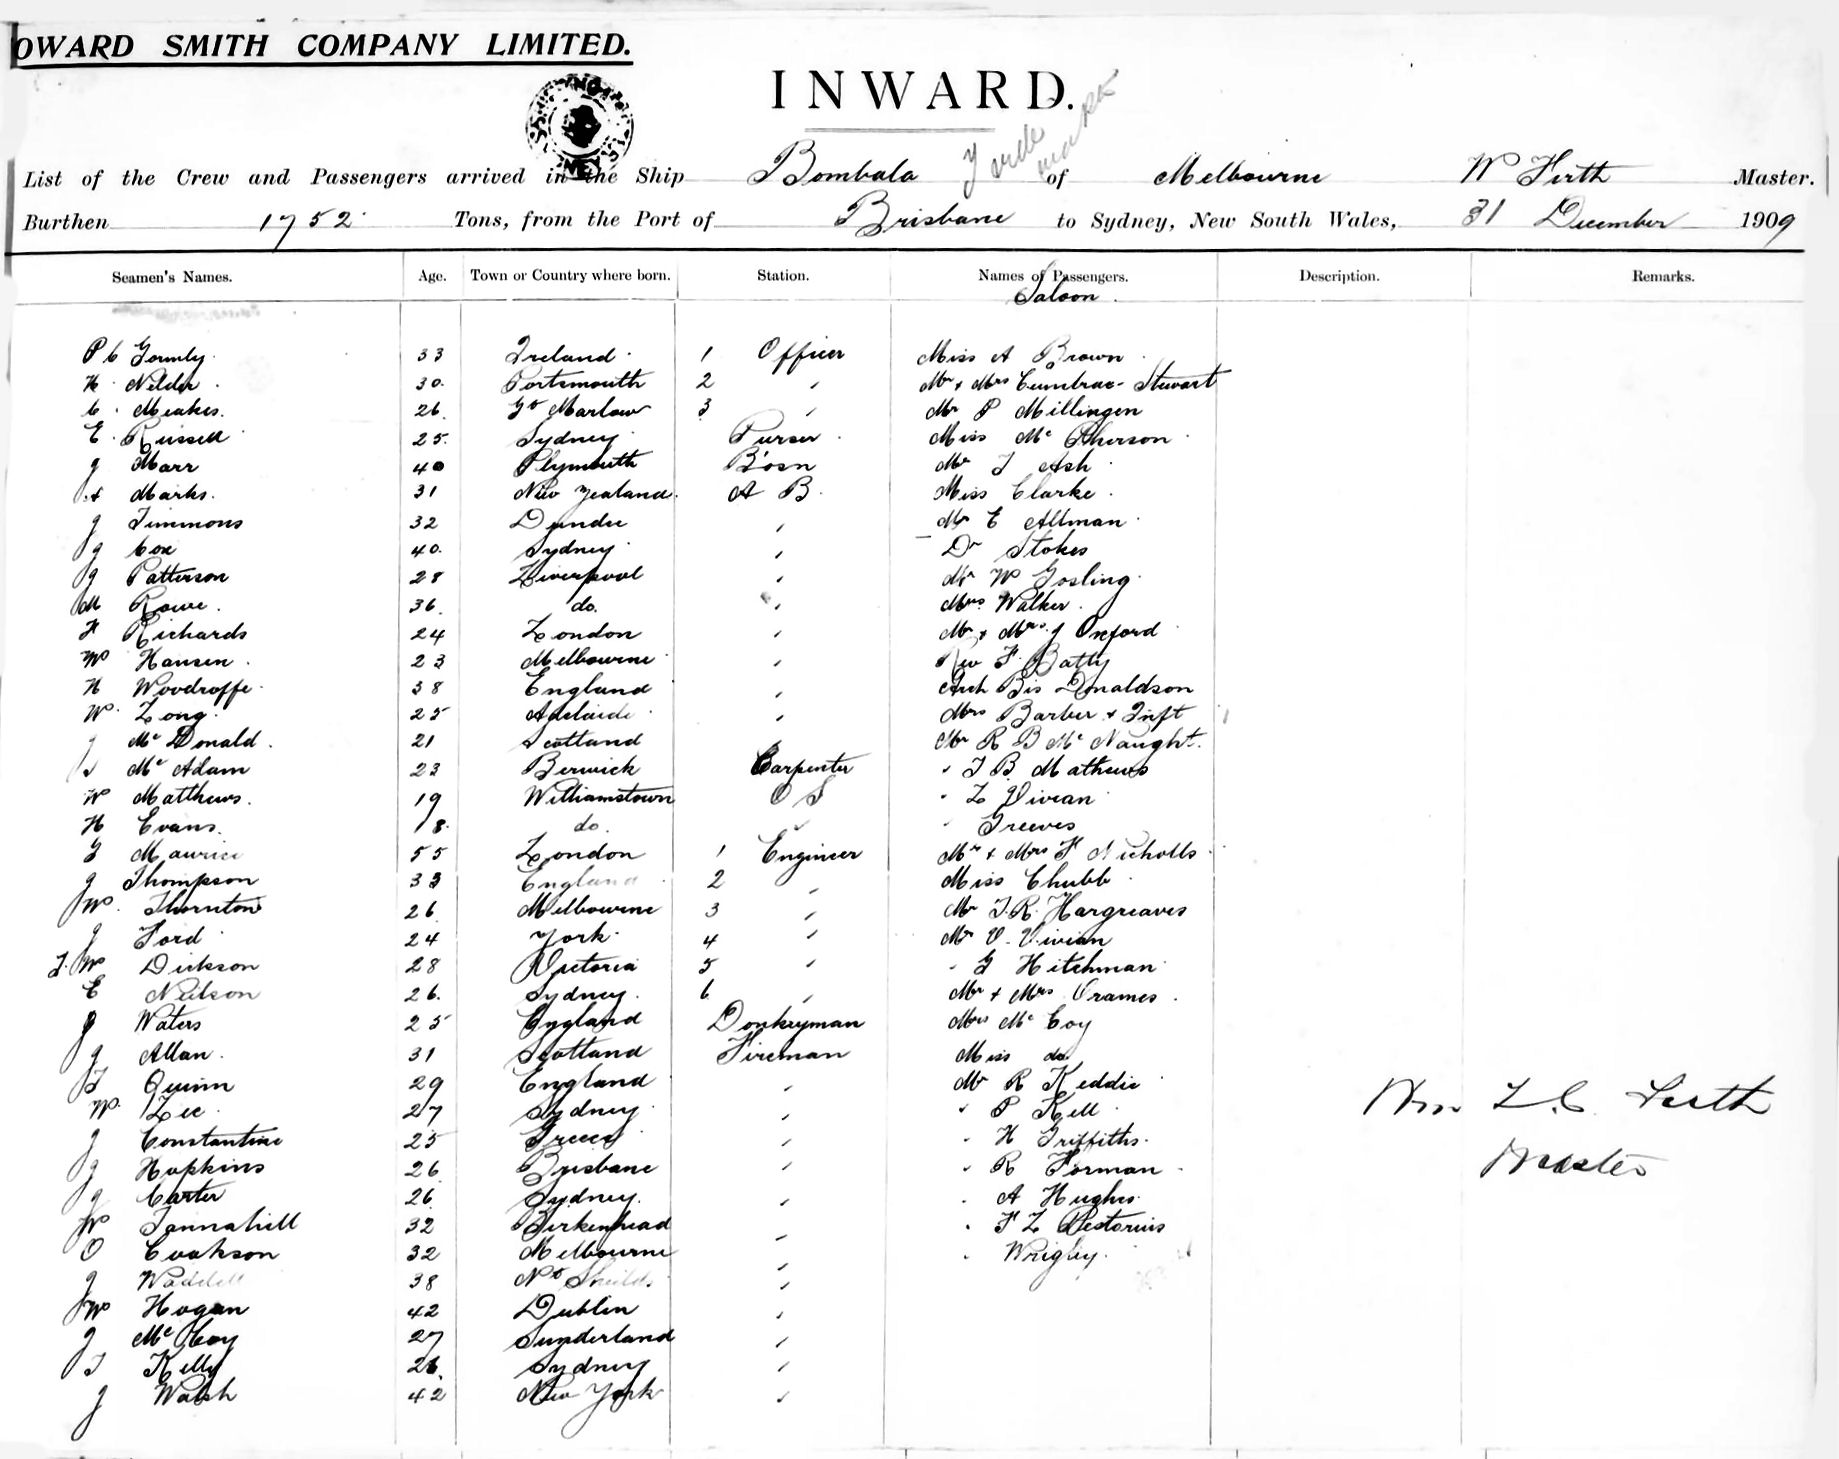 OWARD SMITH COMPANY LIMITED.
INWARD.
List of the Crew and Passengers arrived in the Ship Bombala of Melbourne W Firth Master.
Burthen 1752 Tons, from the Port of Brisbane to Sydney, New South Wales, 31 December 1909
Seamen's Names. Age. Town or Country where born. Station. Names of Passengers. Description. Remarks.
Saloon
P C Gormly 33 Ireland 1 Officer Miss A Brown
H Nelder 30 Portsmouth 2 " Mr & Mrs Cumbrae-Stewart
C Meakes 26 Gt Marlow 3 " Mr P Millingen
E Russell 25 Sydney Purser Miss McPherson
J Marr 40 Plymouth Bosn Mr J Ash
A Marks 31 New Zealand A B Miss Clarke
J Timmons 32 Dundee " Mr E Altman
J Cox 40 Sydney " Dr Stokes
J Patterson 28 Liverpool " Mr W Gosling
M Rowe 36 do. " Mrs Walker
F Richards 24 London " Mr & Mrs J Oxford
W Hansen 23 Melbourne " Rev F Batty
H Woodroffe 38 England " Arch Bis Donaldson
W Long 25 Adelaide " Mrs Barber & Inft
J McDonald 21 Scotland " Mr R B McNaught
McAdam 23 Berwick Carpenter " J B Mathews
W Matthews 19 Williamstown O S " L Vivian
H Evans 18 do. " " Greeves
G Maurice 55 London 1 Engineer Mr & Mrs F Nicholls
J Thompson 33 England 2 " Miss Chubb
J W Thornton 26 Melbourne 3 " Mr J.R. Hargreaves
J Ford 24 York 4 " Mr V. Vivian
J. W Dickson 28 Victoria 5 " " G Hitchman
E Neilson 26 Sydney 6 " Mr & Mrs Crames
J Waters 25 England Donkeyman Mrs McCoy
J Allan 31 Scotland Fireman Miss do
T Quinn 29 England " Mr R Keddie
W Lee 27 Sydney " " P Kell
J Constantine 25 Greece " " H Griffiths
J Hopkins 26 Brisbane " " R Forman
J Carter 26 Sydney " " A Hughes
W Tannahill 32 Birkenhead " " F L Pestorius
O Cookson 32 Melbourne " " Wrigley
J Waddell 38 Nth Sheilds "
J W Hogan 42 Dublin "
J McCoy 27 Sunderland "
T Kelly 26 Sydney "
J Walsh 42 New York "
Wm L.C. Firth
Master